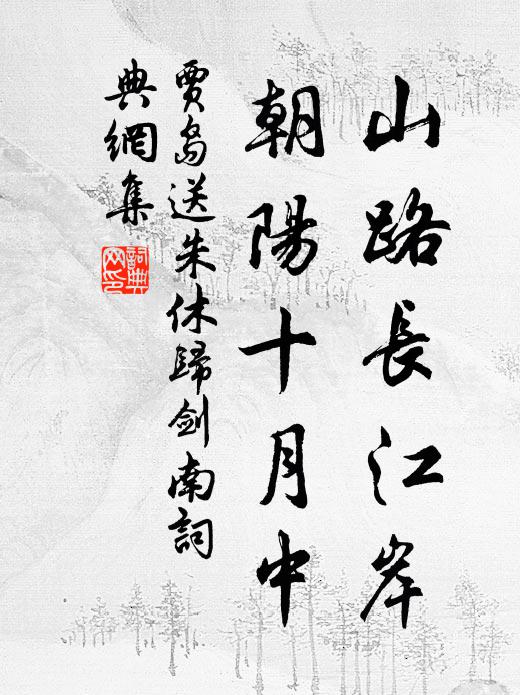 山路長江岸
朝陽十月中
賈島送朱休歸劍南詞
典網集
詞典
网印